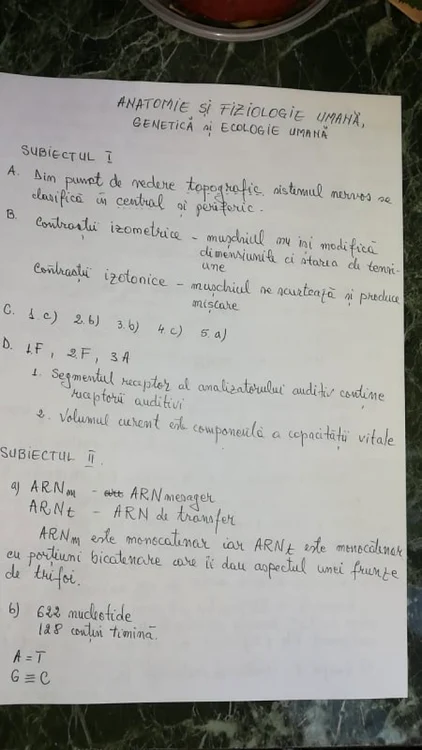 ANATOMIE și FIZIOLOGIE UMANĂ,
GENETICĂ și ECOLOGIE UMANĂ
SUBIECTUL I
A. Din punct de vedere topografic sistemul nervos se
clasifică în central și periferic.
B. Contracții izometrice - mușchiul nu își modifică
dimensiunile ci starea de tensi-
une
Contracții izotonice - mușchiul se scurtează și produce
mișcare
C. 1. c) 2. b) 3. b) 4. c) 5. a)
D. 1. F, 2. F, 3 A
1. Segmentul receptor al analizatorului auditiv conține
receptorii auditivi
2. Volumul curent este componentă a capacității vitale
SUBIECTUL II.
a) ARNm - ARN mesager
ARNt - ARN de transfer
ARNm este monocatenar iar ARNt este monocatenar
cu porțiuni bicatenare care îi dau aspectul unei frunze
de trifoi.
b) 622 nucleotide
128 conțin timină.
A = T
G ≡ C